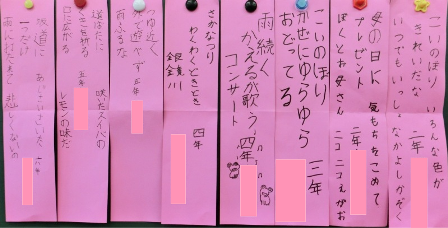 こいのぼり いろんな色が
きれいだな
いつでもいっしょ なかよしかぞく
二年
母の日に 気もちをこめて
プレゼント
ぼくとお母さん ニコニコえがお
二年
こいのぼり
かぜにゆらゆら
おどってる
三年
雨続く
かえるが歌う
コンサート
四年
さかなつり
わくわくどきどき
銀鏡川
四年
つゆ近く
外で遊べず
雨ふるな
五年
道ばたに 咲いたスイバの
くきを折る
口に広がる レモンの味だ
五年